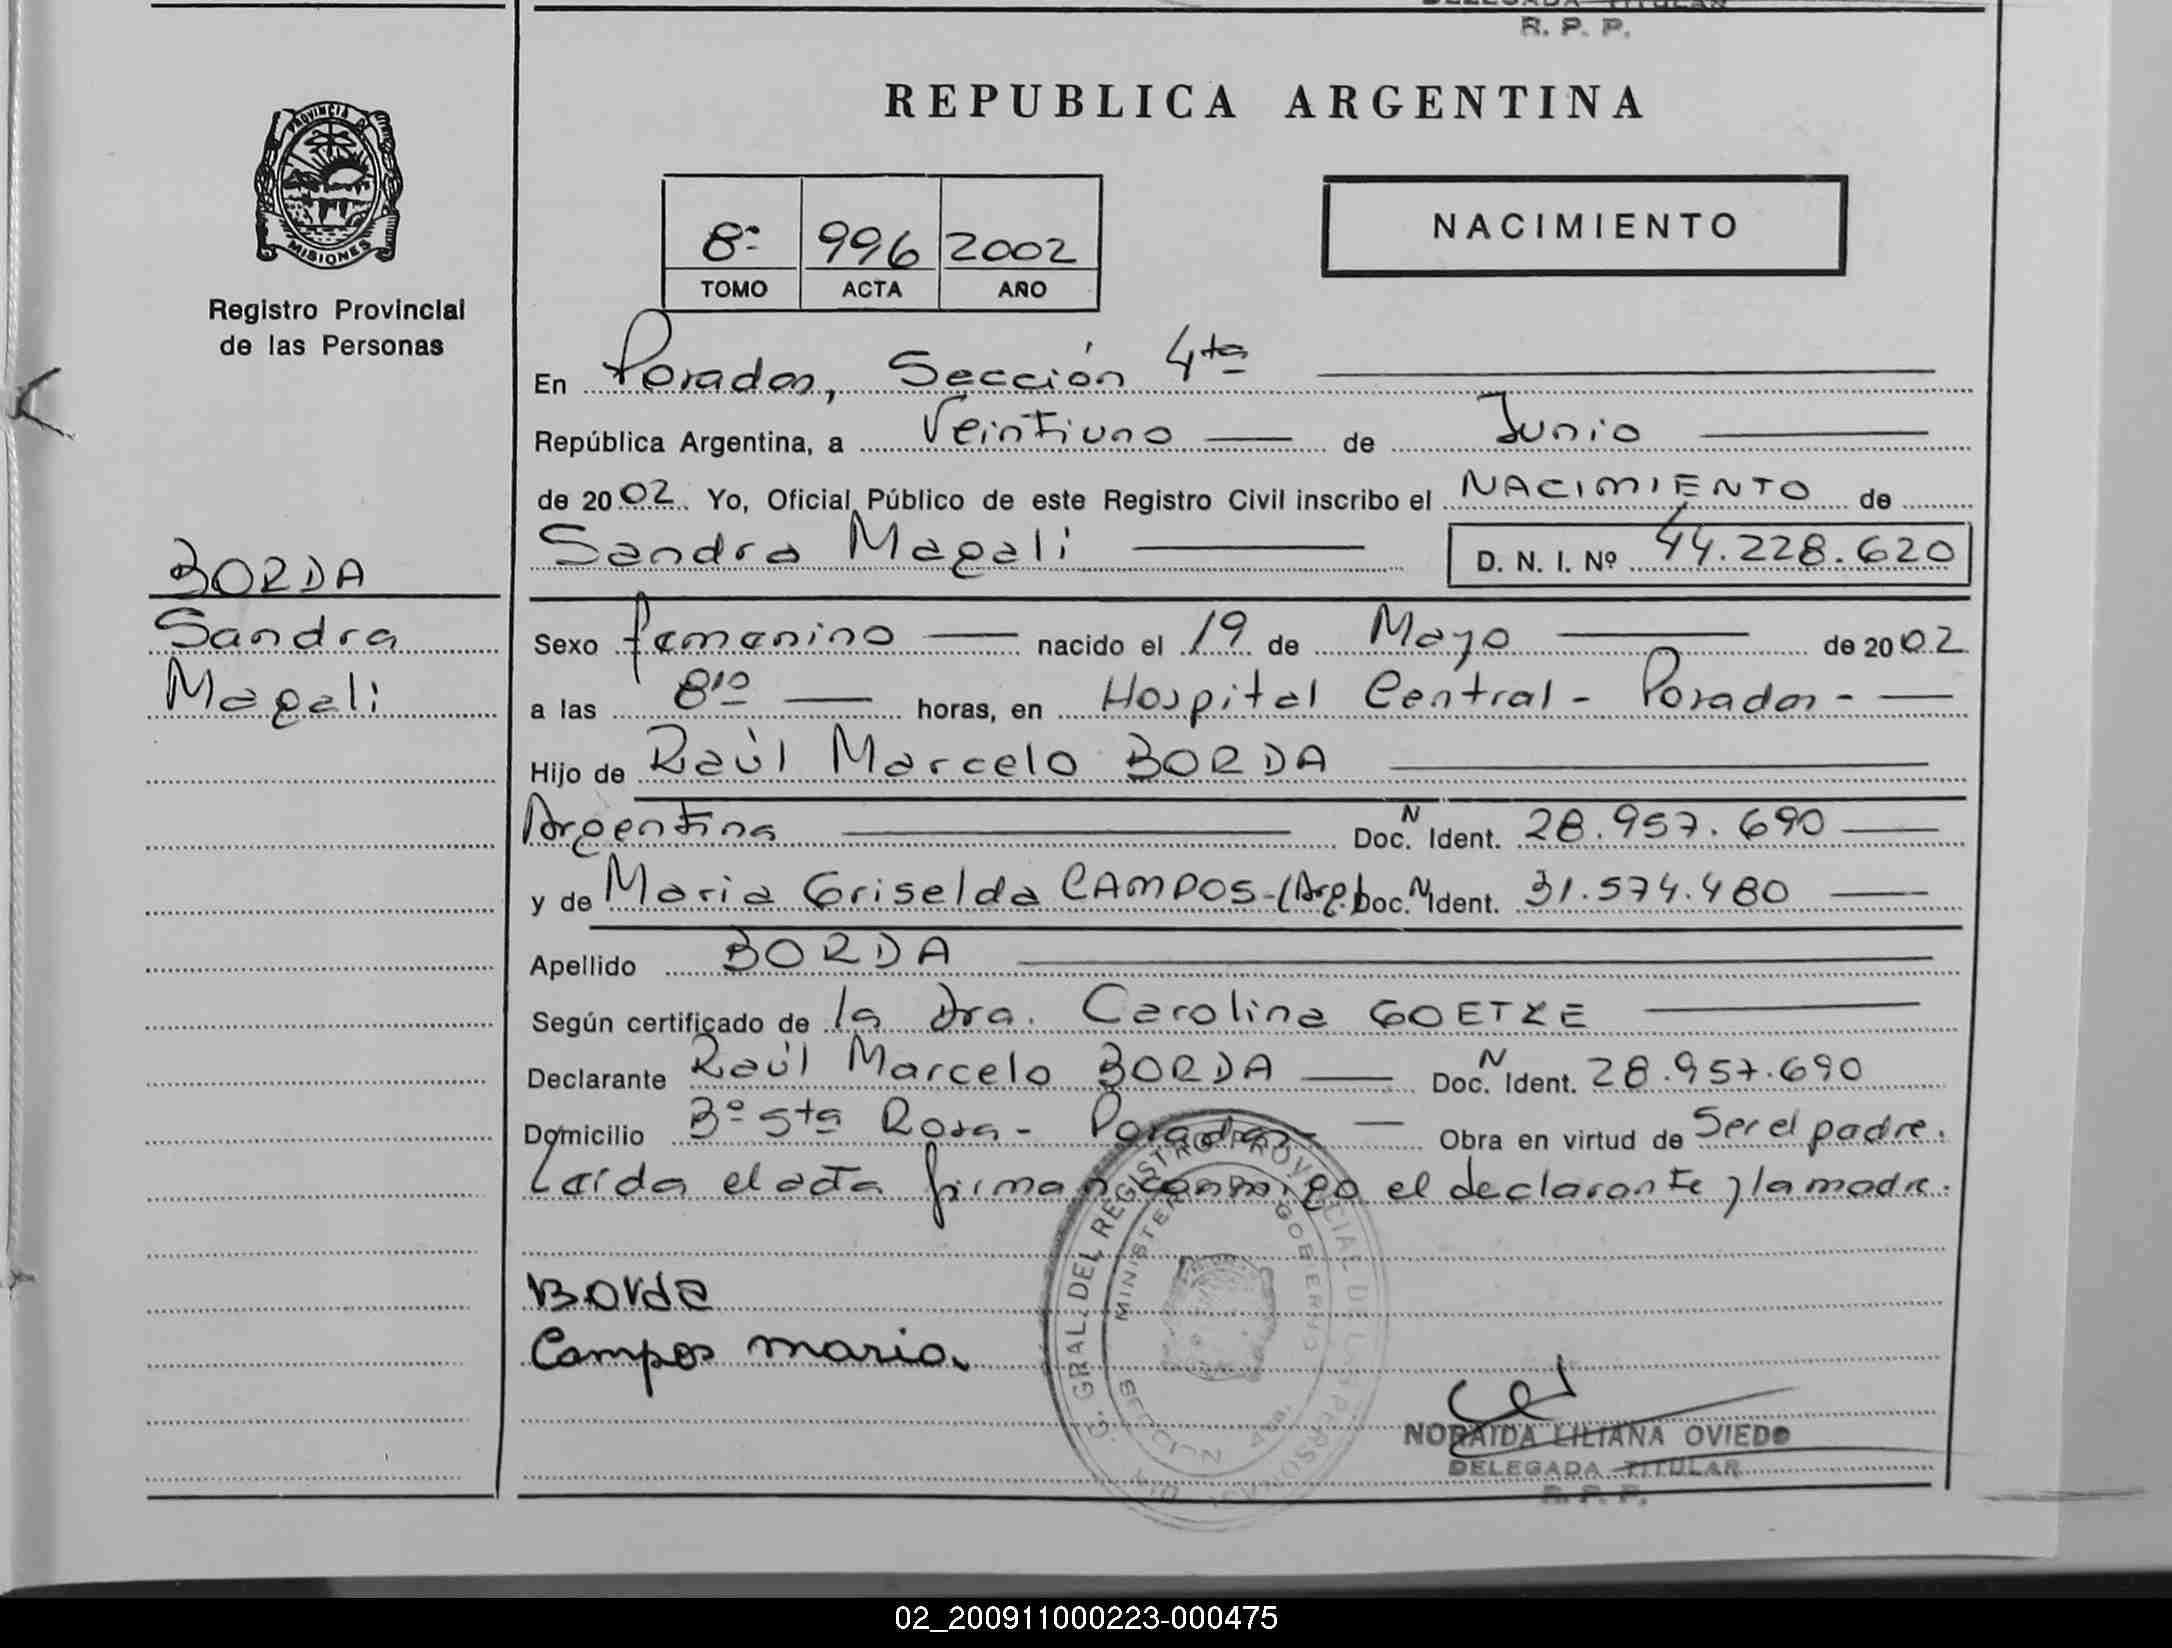 R. P. P.
REPUBLICA ARGENTINA
PROVINCIA DE
MISIONES
Registro Provincial
de las Personas
8º 996 2002
TOMO ACTA AÑO
NACIMIENTO
En Posadas, Sección 4ta
República Argentina, a Veintiuno de Junio
de 2002. Yo, Oficial Público de este Registro Civil inscribo el NACIMIENTO de
BORDA
Sandra
Magali
Sandra Magali D. N. I. Nº 44.228.620
Sexo femenino nacido el 19 de Mayo de 2002
a las 8'10 horas, en Hospital Central - Posadas -
Hijo de Raúl Marcelo BORDA
Argentina Doc. N Ident. 28.957.690
y de Maria Griselda CAMPOS - (Arg.) Doc. N Ident. 31.574.480
Apellido BORDA
Según certificado de la Dra. Carolina GOETZE
Declarante Raúl Marcelo BORDA Doc. N Ident. 28.957.690
Domicilio Bº Sta Rosa - Posadas - Obra en virtud de Ser el padre.
Leída el acta firman conmigo el declarante y la madre.
Borda
Campos maria
G. GRAL. DEL REGISTRO PROVINCIAL DE LAS PERSONAS
MINISTERIO GOBIERNO
SECCION 4ta.
NORAIDA LILIANA OVIEDO
DELEGADA TITULAR
R. P. P.
02_200911000223-000475